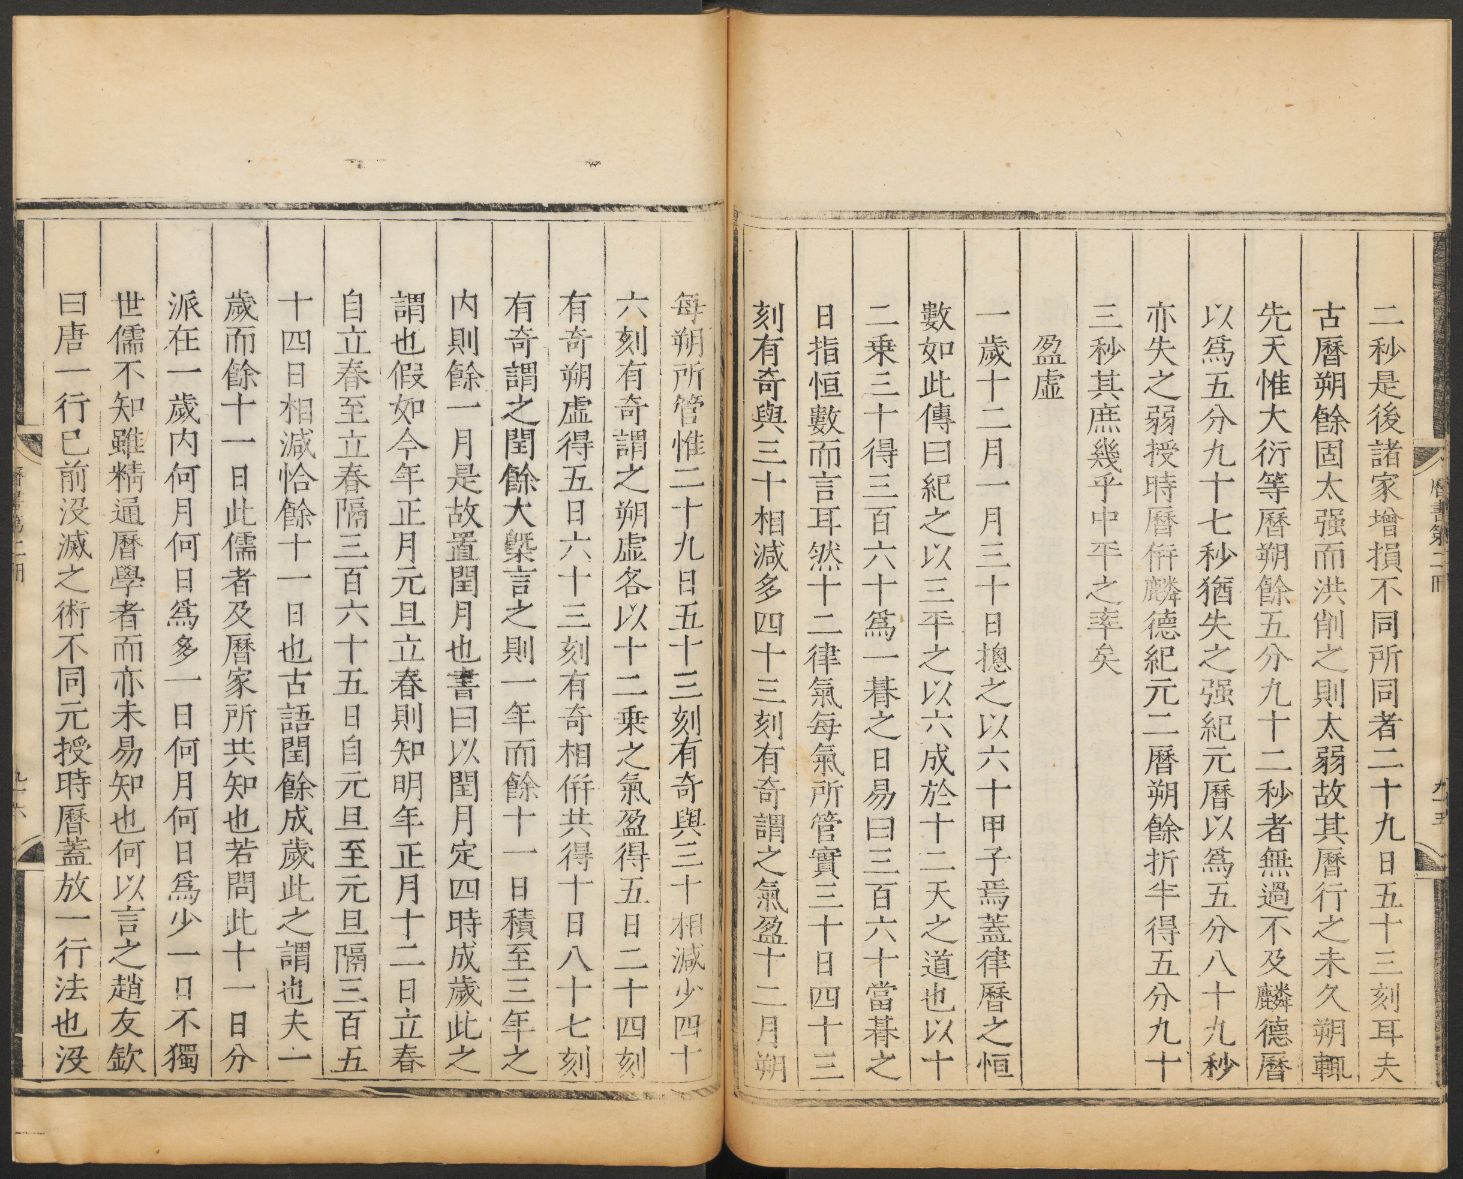 二秒是後諸家增損不同所同者二十九日五十三刻耳夫
古曆朔餘固太强而洪削之則太弱故其曆行之未久朔輒
先天惟大衍等曆朔餘五分九十二秒者無過不及麟德曆
以爲五分九十七秒猶失之强紀元曆以爲五分八十九秒
亦失之弱授時曆倂麟德紀元二曆朔餘折半得五分九十
三秒其庶幾乎中平之率矣
盈虛
一歲十二月一月三十日摠之以六十甲子焉蓋律曆之恒
數如此傳曰紀之以三平之以六成於十二天之道也以十
二乗三十得三百六十爲一朞之日易曰三百六十當朞之
日指恒數而言耳然十二律氣每氣所管實三十日四十三
刻有奇與三十相減多四十三刻有奇謂之氣盈十二月朔
每朔所管惟二十九日五十三刻有奇與三十相減少四十
六刻有奇謂之朔虛各以十二乗之氣盈得五日二十四刻
有奇朔虛得五日六十三刻有奇相倂共得十日八十七刻
有奇謂之閏餘大槩言之則一年而餘十一日積至三年之
内則餘一月是故置閏月也書曰以閏月定四時成歲此之
謂也假如今年正月元旦立春則知明年正月十二日立春
自立春至立春隔三百六十五日自元旦至元旦隔三百五
十四日相減恰餘十一日也古語閏餘成歲此之謂也夫一
歲而餘十一日此儒者及曆家所共知也若問此十一日分
派在一歲内何月何日爲多一日何月何日爲少一日不獨
世儒不知雖精通曆學者而亦未易知也何以言之趙友欽
曰唐一行已前没滅之術不同元授時曆蓋放一行法也没
曆書第二冊
九十五
曆書第二冊
九十六